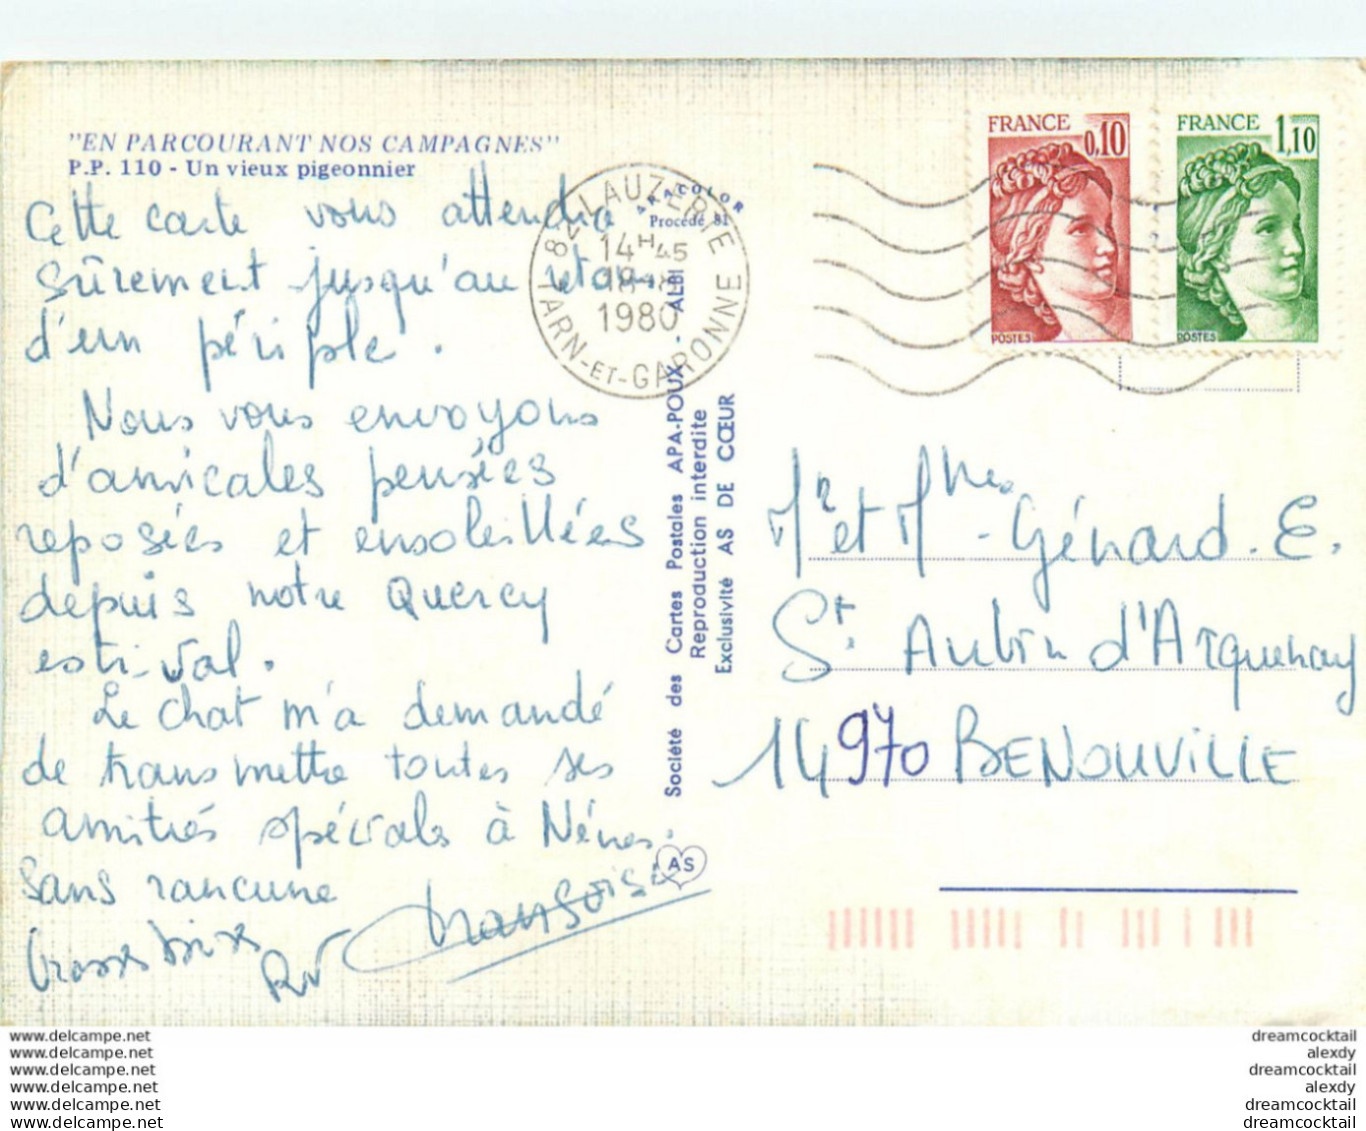 "EN PARCOURANT NOS CAMPAGNES"
P.P. 110 - Un vieux pigeonnier
Cette carte vous attendra
sûrement jusqu'au retour
d'un périple.
Nous vous envoyons
d'amicales pensées
reposées et ensoleillées
depuis notre QUERCY
estival.
Le chat m'a demandé
de transmettre toutes ses
amitiés spéciales à
Sans rancune
Grosses bises
Françoise
82 LAUZERTE
14H45
1980
TARN-ET-GARONNE
ARACOLOR
Procédé 81
Société des Cartes Postales APA-POUX - ALBI
Reproduction interdite
Exclusivité AS DE CŒUR
AS
FRANCE 0,10
POSTES
FRANCE 1,10
POSTES
Mr et Mme Génard. E.
St. Aubin d'Arquenay
14970 BENOUVILLE
www.delcampe.net
www.delcampe.net
www.delcampe.net
www.delcampe.net
www.delcampe.net
www.delcampe.net
dreamcocktail
alexdy
dreamcocktail
alexdy
dreamcocktail
dreamcocktail